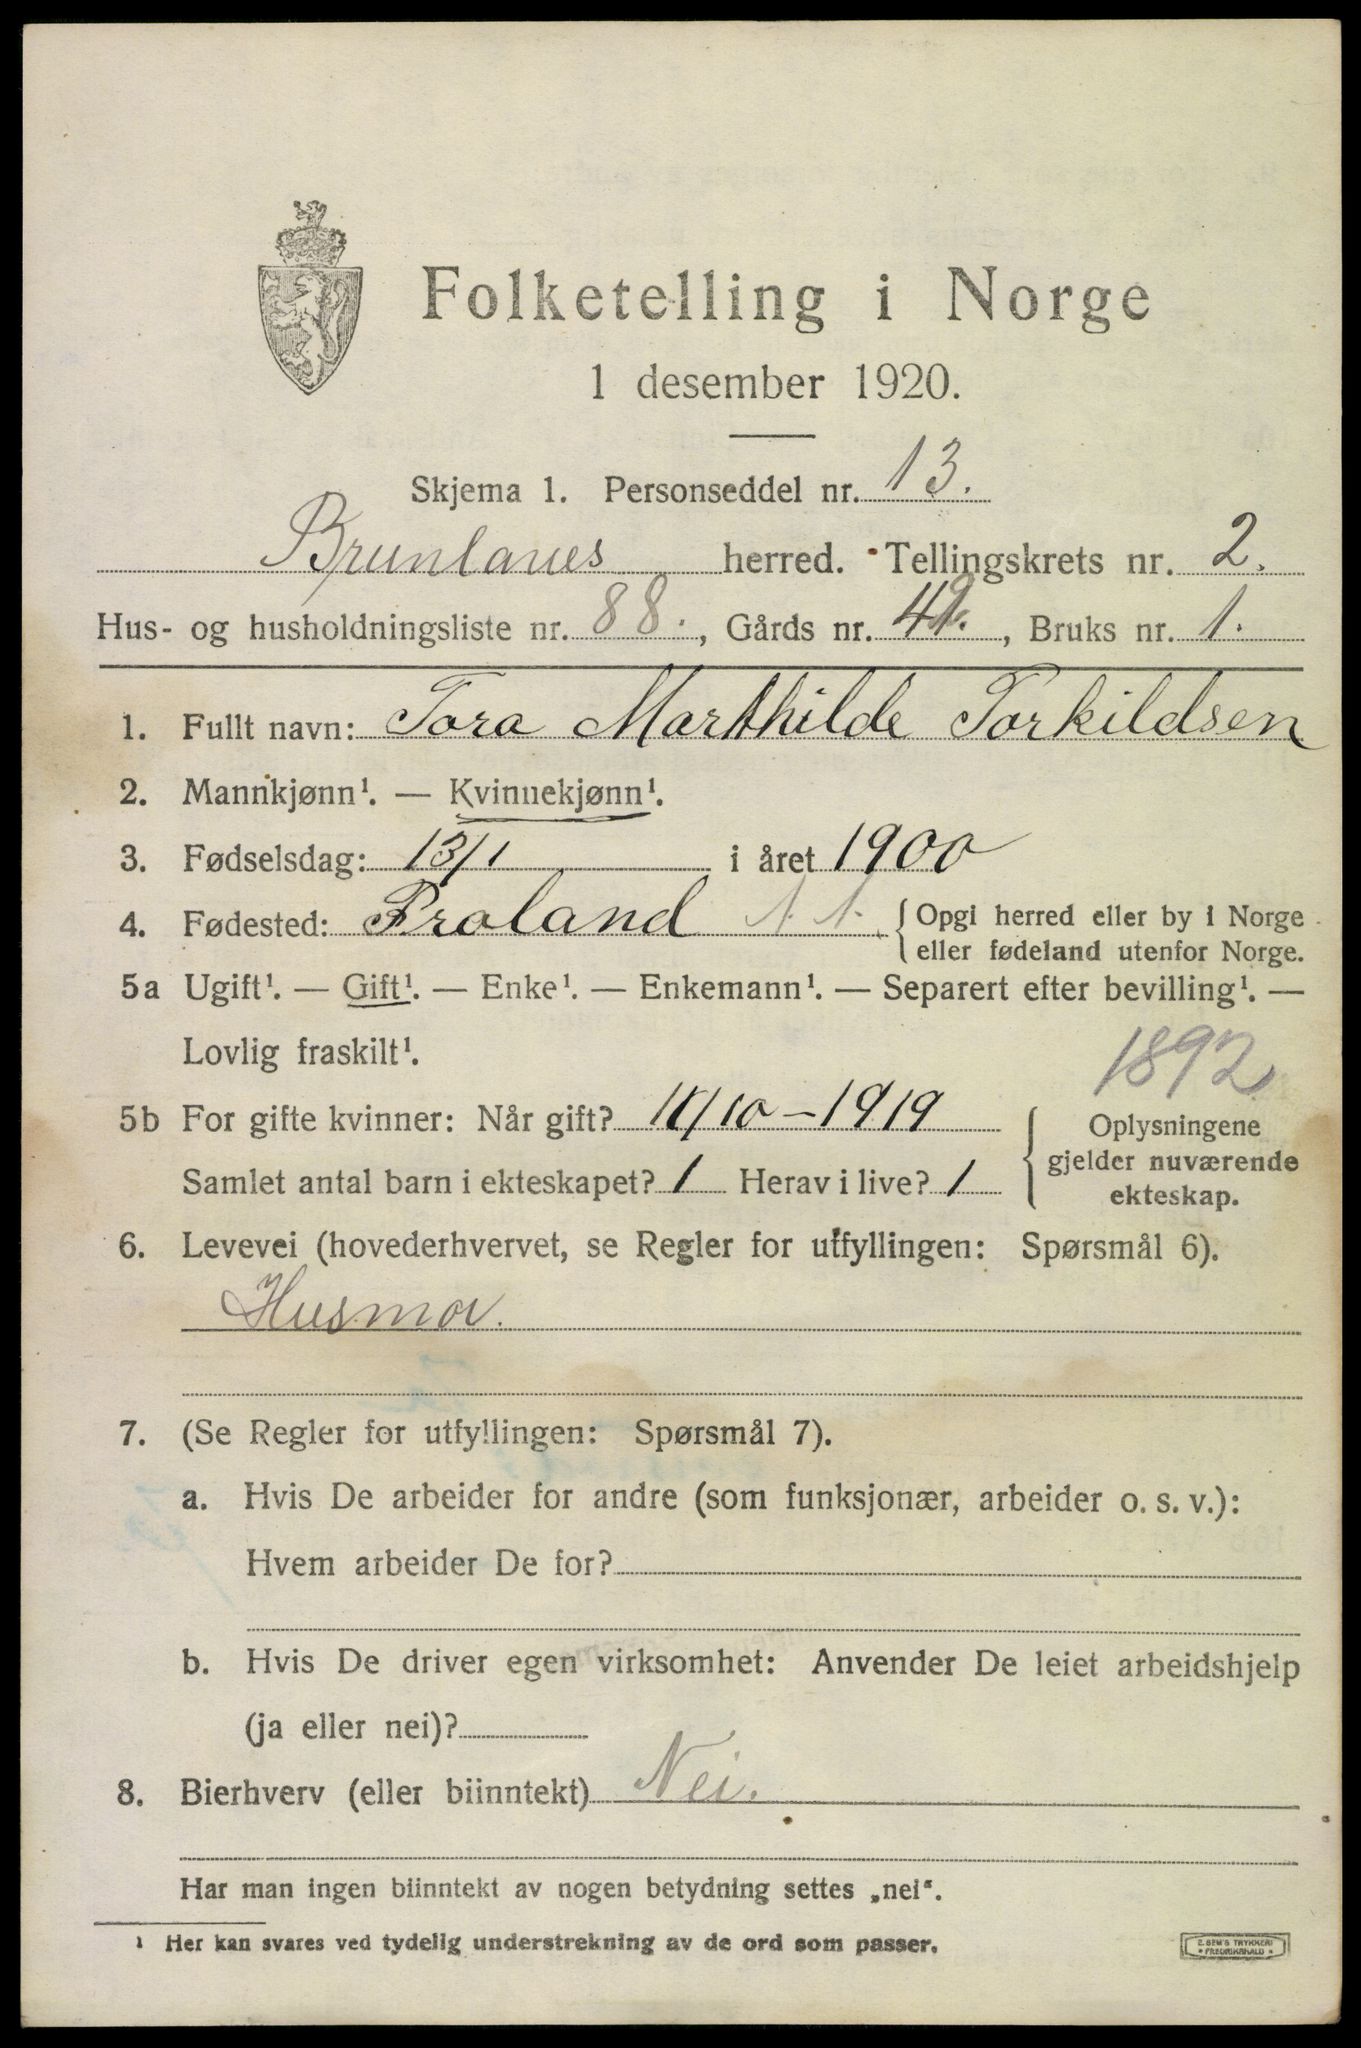 Folketelling i Norge
1 desember 1920.
Skjema 1. Personseddel nr. 13.
Brunlanes herred. Tellingskrets nr. 2.
Hus- og husholdningsliste nr. 88., Gårds nr. , Bruks nr. 1.
1. Fullt navn: Tora Marthilde Torkildsen
2. Mannkjønn¹. — Kvinnekjønn¹.
3. Fødselsdag: 13/1 i året 1900
4. Fødested: Froland { Opgi herred eller by i Norge
eller fødeland utenfor Norge.
5a Ugift¹. — Gift¹. — Enke¹. — Enkemann¹. — Separert efter bevilling¹. —
Lovlig fraskilt¹.
1892
5b For gifte kvinner: Når gift? /10-1919
Samlet antal barn i ekteskapet? 1 Herav i live? 1
{ Oplysningene
gjelder nuværende
ekteskap.
6. Levevei (hovederhvervet, se Regler for utfyllingen: Spørsmål 6).
Husmor.
7. (Se Regler for utfyllingen: Spørsmål 7).
a. Hvis De arbeider for andre (som funksjonær, arbeider o. s. v.):
Hvem arbeider De for?
b. Hvis De driver egen virksomhet: Anvender De leiet arbeidshjelp
(ja eller nei)?
8. Bierhverv (eller biinntekt) Nei.
Har man ingen biinntekt av nogen betydning settes „nei“.
¹ Her kan svares ved tydelig understrekning av de ord som passer.
E. SEM'S TRYKKERI
FREDRIKSHALD